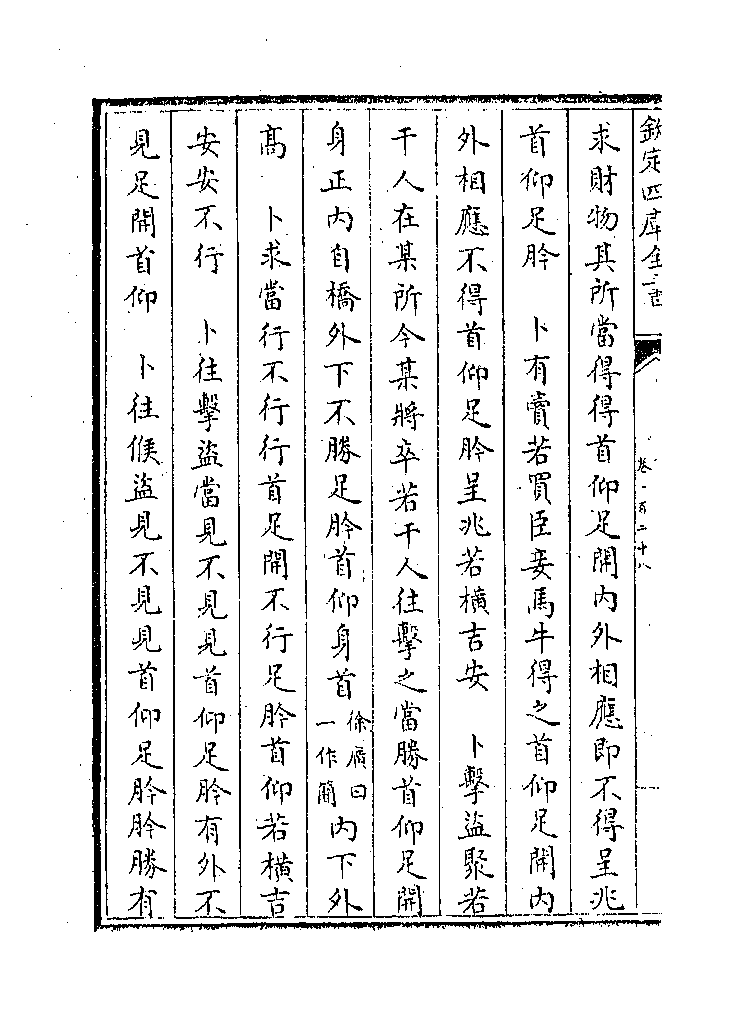 欽定四庫全書
卷一百二十八
求財物其所當得得首仰足開内外相應即不得呈兆
首仰足肣　卜有賣若買臣妾馬牛得之首仰足開内
外相應不得首仰足肣呈兆若横吉安　卜擊盜聚若
干人在某所今某將卒若干人往擊之當勝首仰足開
身正内自橋外下不勝足肣首仰身首徐廣曰一作簡内下外
高　卜求當行不行行首足開不行足肣首仰若横吉
安安不行　卜往擊盜當見不見見首仰足肣有外不
見足開首仰　卜往候盜見不見見首仰足肣肣勝有